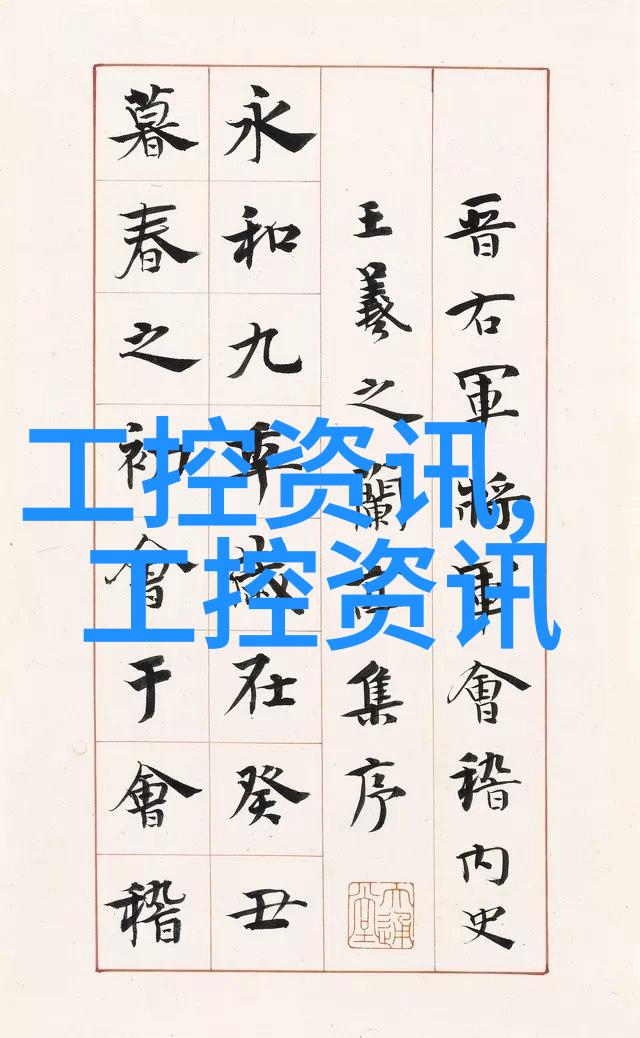 晋右軍將軍會稽内史
王羲之蘭亭集序
永和九年歲在癸丑
暮春之初會于會稽
工控资讯,
工控资讯